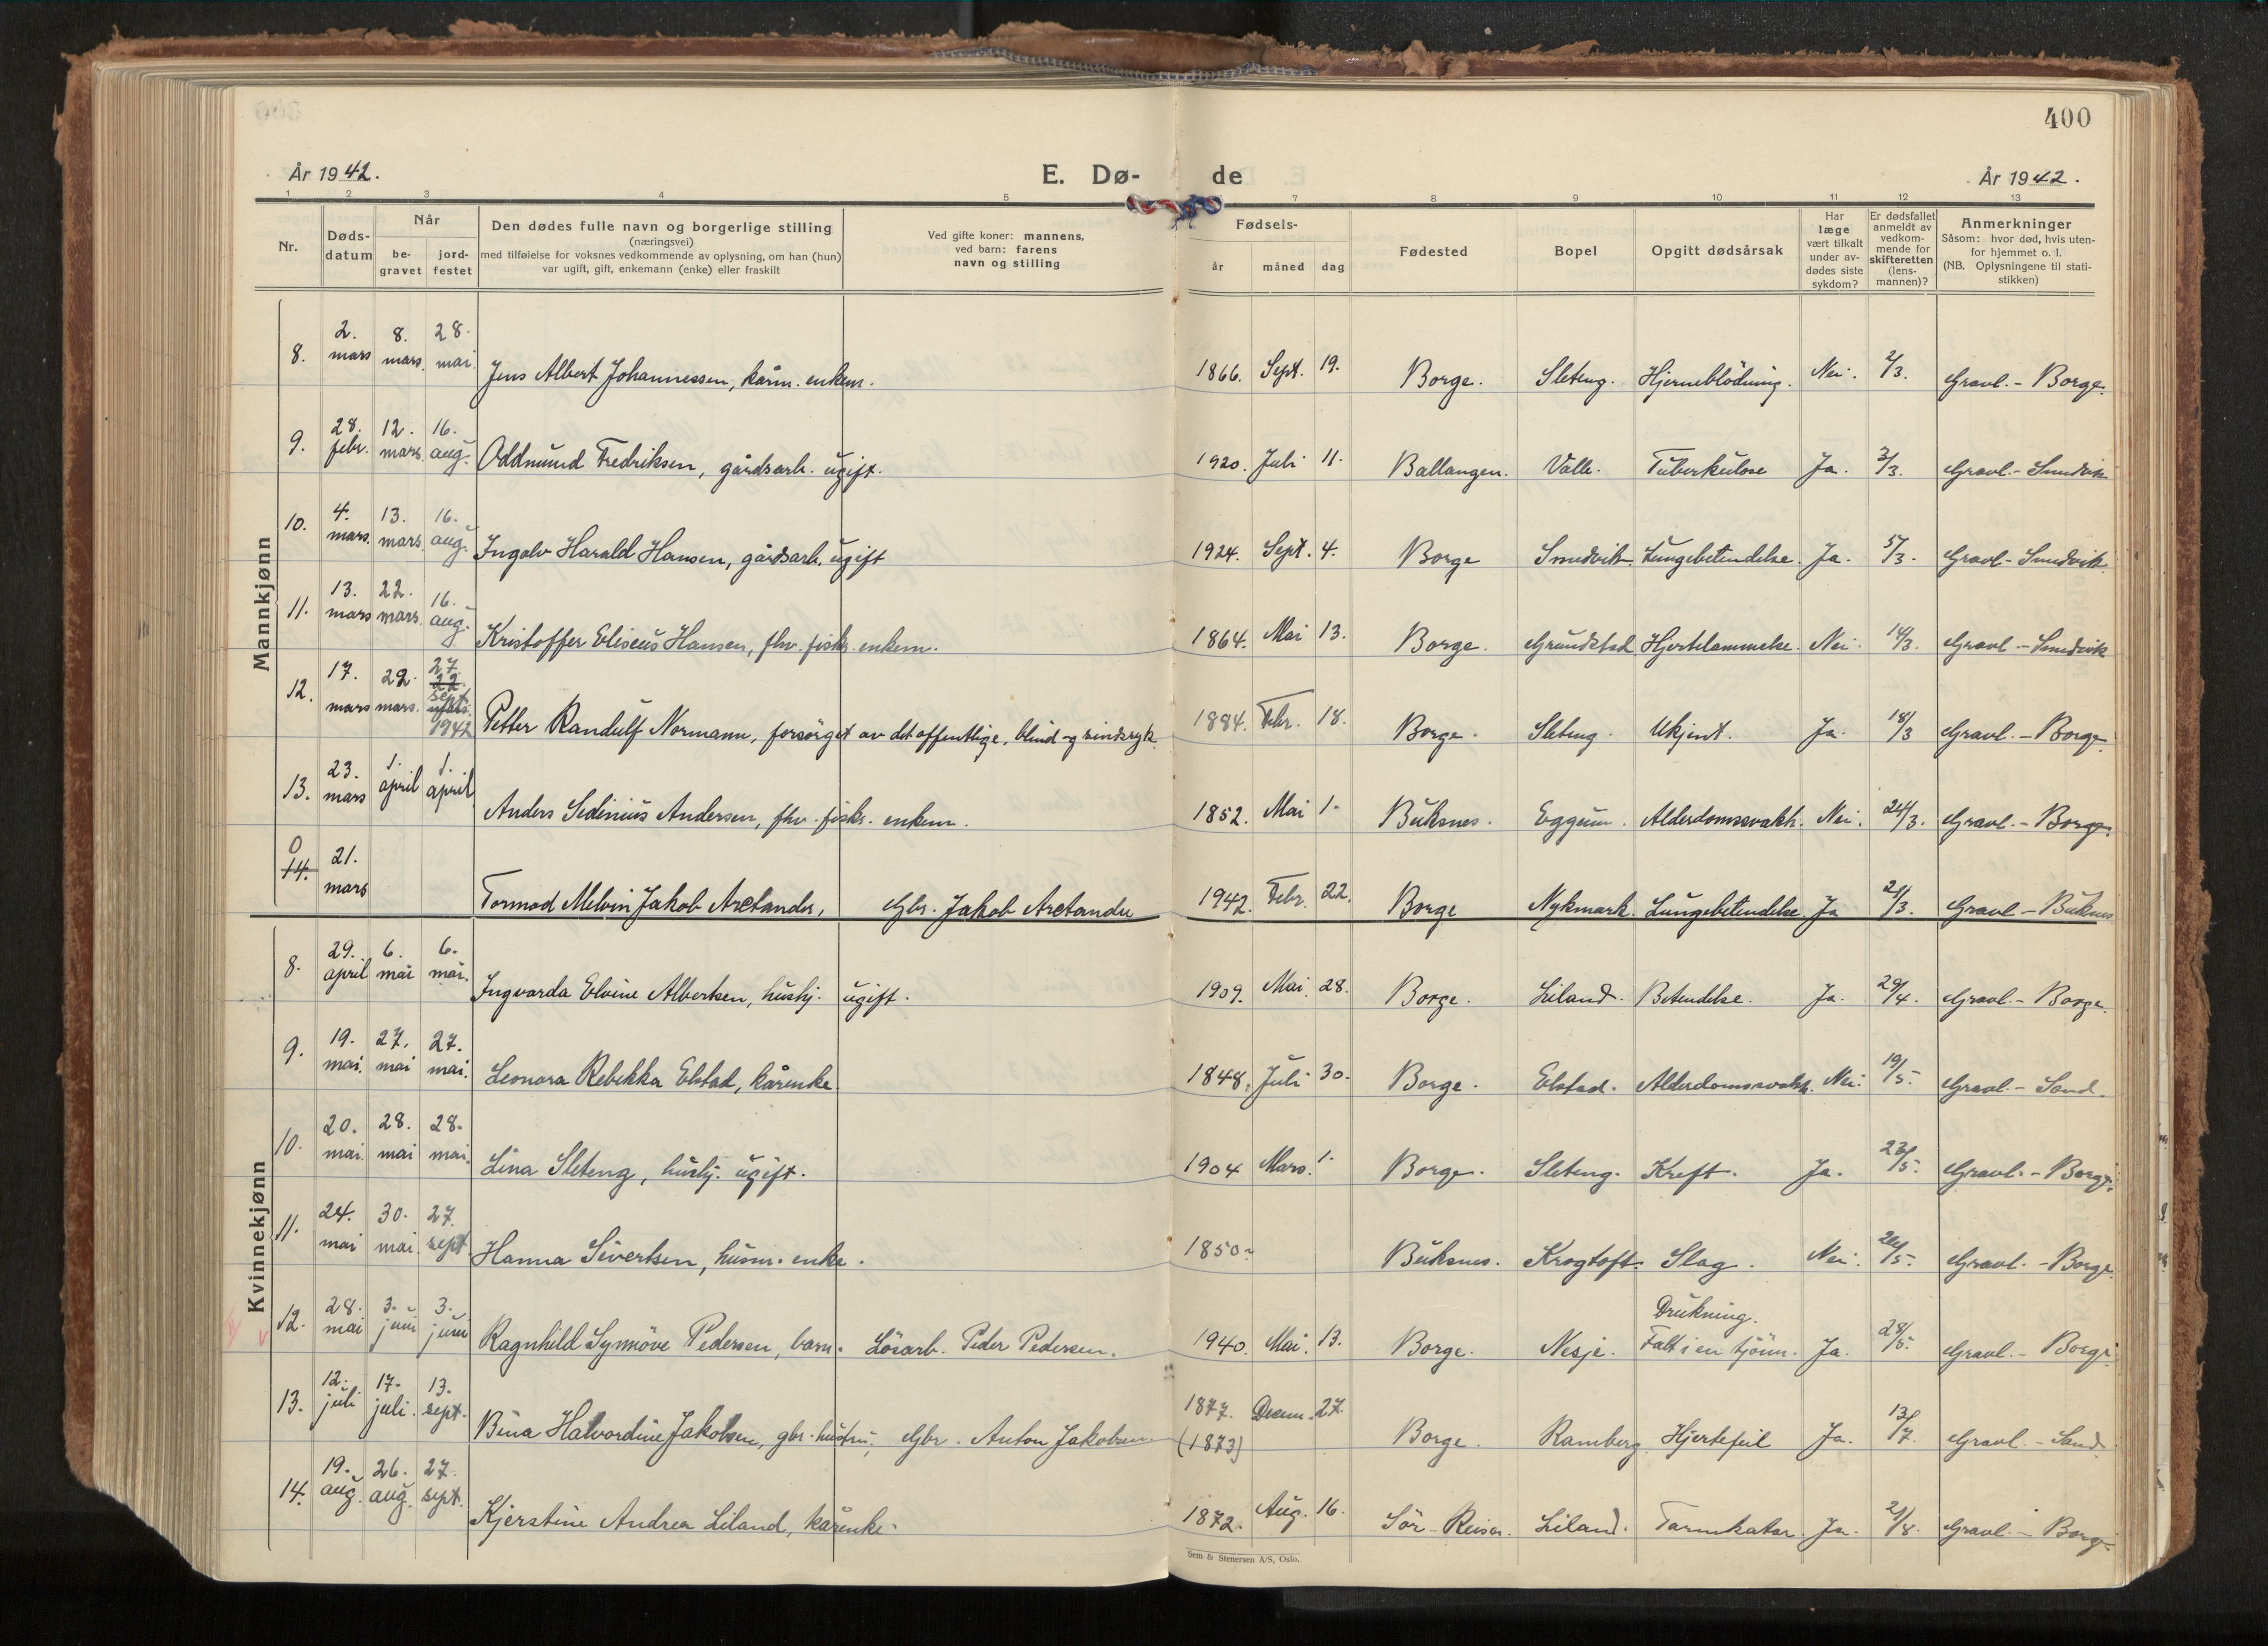 400
År 1942.
E. Dø-
de
År 1942.
1 2 3 4 5 7 8 9 10 11 12 13
Nr.
Døds-
datum
Når
be-
gravet
jord-
festet
Den dødes fulle navn og borgerlige stilling
(næringsvei)
med tilføielse for voksnes vedkommende av oplysning, om han (hun)
var ugift, gift, enkemann (enke) eller fraskilt
Ved gifte koner: mannens,
ved barn: farens
navn og stilling
Fødsels-
år
måned
dag
Fødested
Bopel
Opgitt dødsårsak
Har
læge
vært tilkalt
under av-
dødes siste
sykdom?
Er dødsfallet
anmeldt av
vedkom-
mende for
skifteretten
(lens-
mannen)?
Anmerkninger
Såsom: hvor død, hvis uten-
for hjemmet o. l.
(NB. Oplysningene til stati-
stikken)
Mannkjønn
8. 2. mars 8. mars. 28. mai. Jens Albert Johannessen, kårm. enkem. 1866. Sept. 19. Borge. Sleteng. Hjerneblödning. Nei. 2/3. Gravl. - Borge.
9. 28. febr. 12. mars. 16. aug. Oddmund Fredriksen, gårdsarb. ugift. 1920. Juli 11. Ballangen. Valle. Tuberkulose Ja. 3/3. Gravl. - Smedvik
10. 4. mars. 13. mars. 16. aug. Ingolv Harald Hansen, gårdsarb. ugift 1924. Sept. 4. Borge Smedvik. Lungebetendelse. Ja. 5/3. Gravl. - Smedvik.
11. 13. mars 22. mars. 16. aug. Kristoffer Eliseus Hansen, fhv. fisker. enkem. 1864. Mai 13. Borge. Grundstad Hjertelammelse. Nei. 14/3. Gravl. - Smedvik
12. 17. mars 29. mars. 27. 22. sept. 1942 Petter Randulf Normann, forsörget av det offentlige, blind og sindssyk. 1884. Febr. 18. Borge. Sleteng. Ukjent. Ja. 18/3 Gravl. - Borge.
13. 23. mars 1. april 1. april Anders Sedinius Andersen, fhv. fisker. enkem. 1852. Mai 1. Buksnes. Eggum. Alderdomssvakh. Nei. 24/3. Gravl. - Borge.
0 14. 21. mars Tormod Melvin Jakob Arctander, Gbr. Jakob Arctander 1942. Febr. 22. Borge Nykmark. Lungebetendelse. Ja 21/3. Gravl - Buksnes
Kvinnekjønn
8. 29. april 6. mai 6. mai. Ingvarda Elvine Albertsen, hushj. ugift. 1909. Mai. 28. Borge. Liland. Betendelse. Ja. 29/4. Gravl. - Borge.
9. 19. mai. 27. mai 27. mai. Leonora Rebekka Elstad, kårenke. 1848. Juli 30. Borge. Elstad. Alderdomssvakh. Nei. 19/5. Gravl. - Sand.
10. 20. mai. 28. mai 28. mai. Lina Sleteng, hushj. ugift. 1904 Mars. 1. Borge. Sleteng. Kreft. Ja. 23/5. Gravl. - Borge.
11. 24. mai 30. mai. 27. sept Hanna Sivertsen, husm. enke. 1850. Buksnes. Krogtoft. Slag. Nei. 26/5. Gravl. - Borge.
12. 28. mai 3. juni 3. juni Ragnhild Synnöve Pedersen, barn. Lösarb. Peder Pedersen. 1940. Mai. 13. Borge. Nesje. Drukning. Falt i en tjönn. Ja. 28/5. Gravl. - Borge.
13. 12. juli 17. juli. 13. sept. Bina Halvordine Jakobsen, gbr. hustru, Gbr. Anton Jakobsen. 1877. (1873) Decem. 27. Borge. Ramberg. Hjertefeil Ja. 13/7. Gravl. - Sand
14. 19. aug. 26. aug. 27. sept. Kjerstine Andrea Liland, kårenke. 1872. Aug. 16. Sör-Reisa. Liland. Tarmkatar. Ja. 21/8. Gravl. - Borge.
Sem & Stenersen A/S, Oslo.